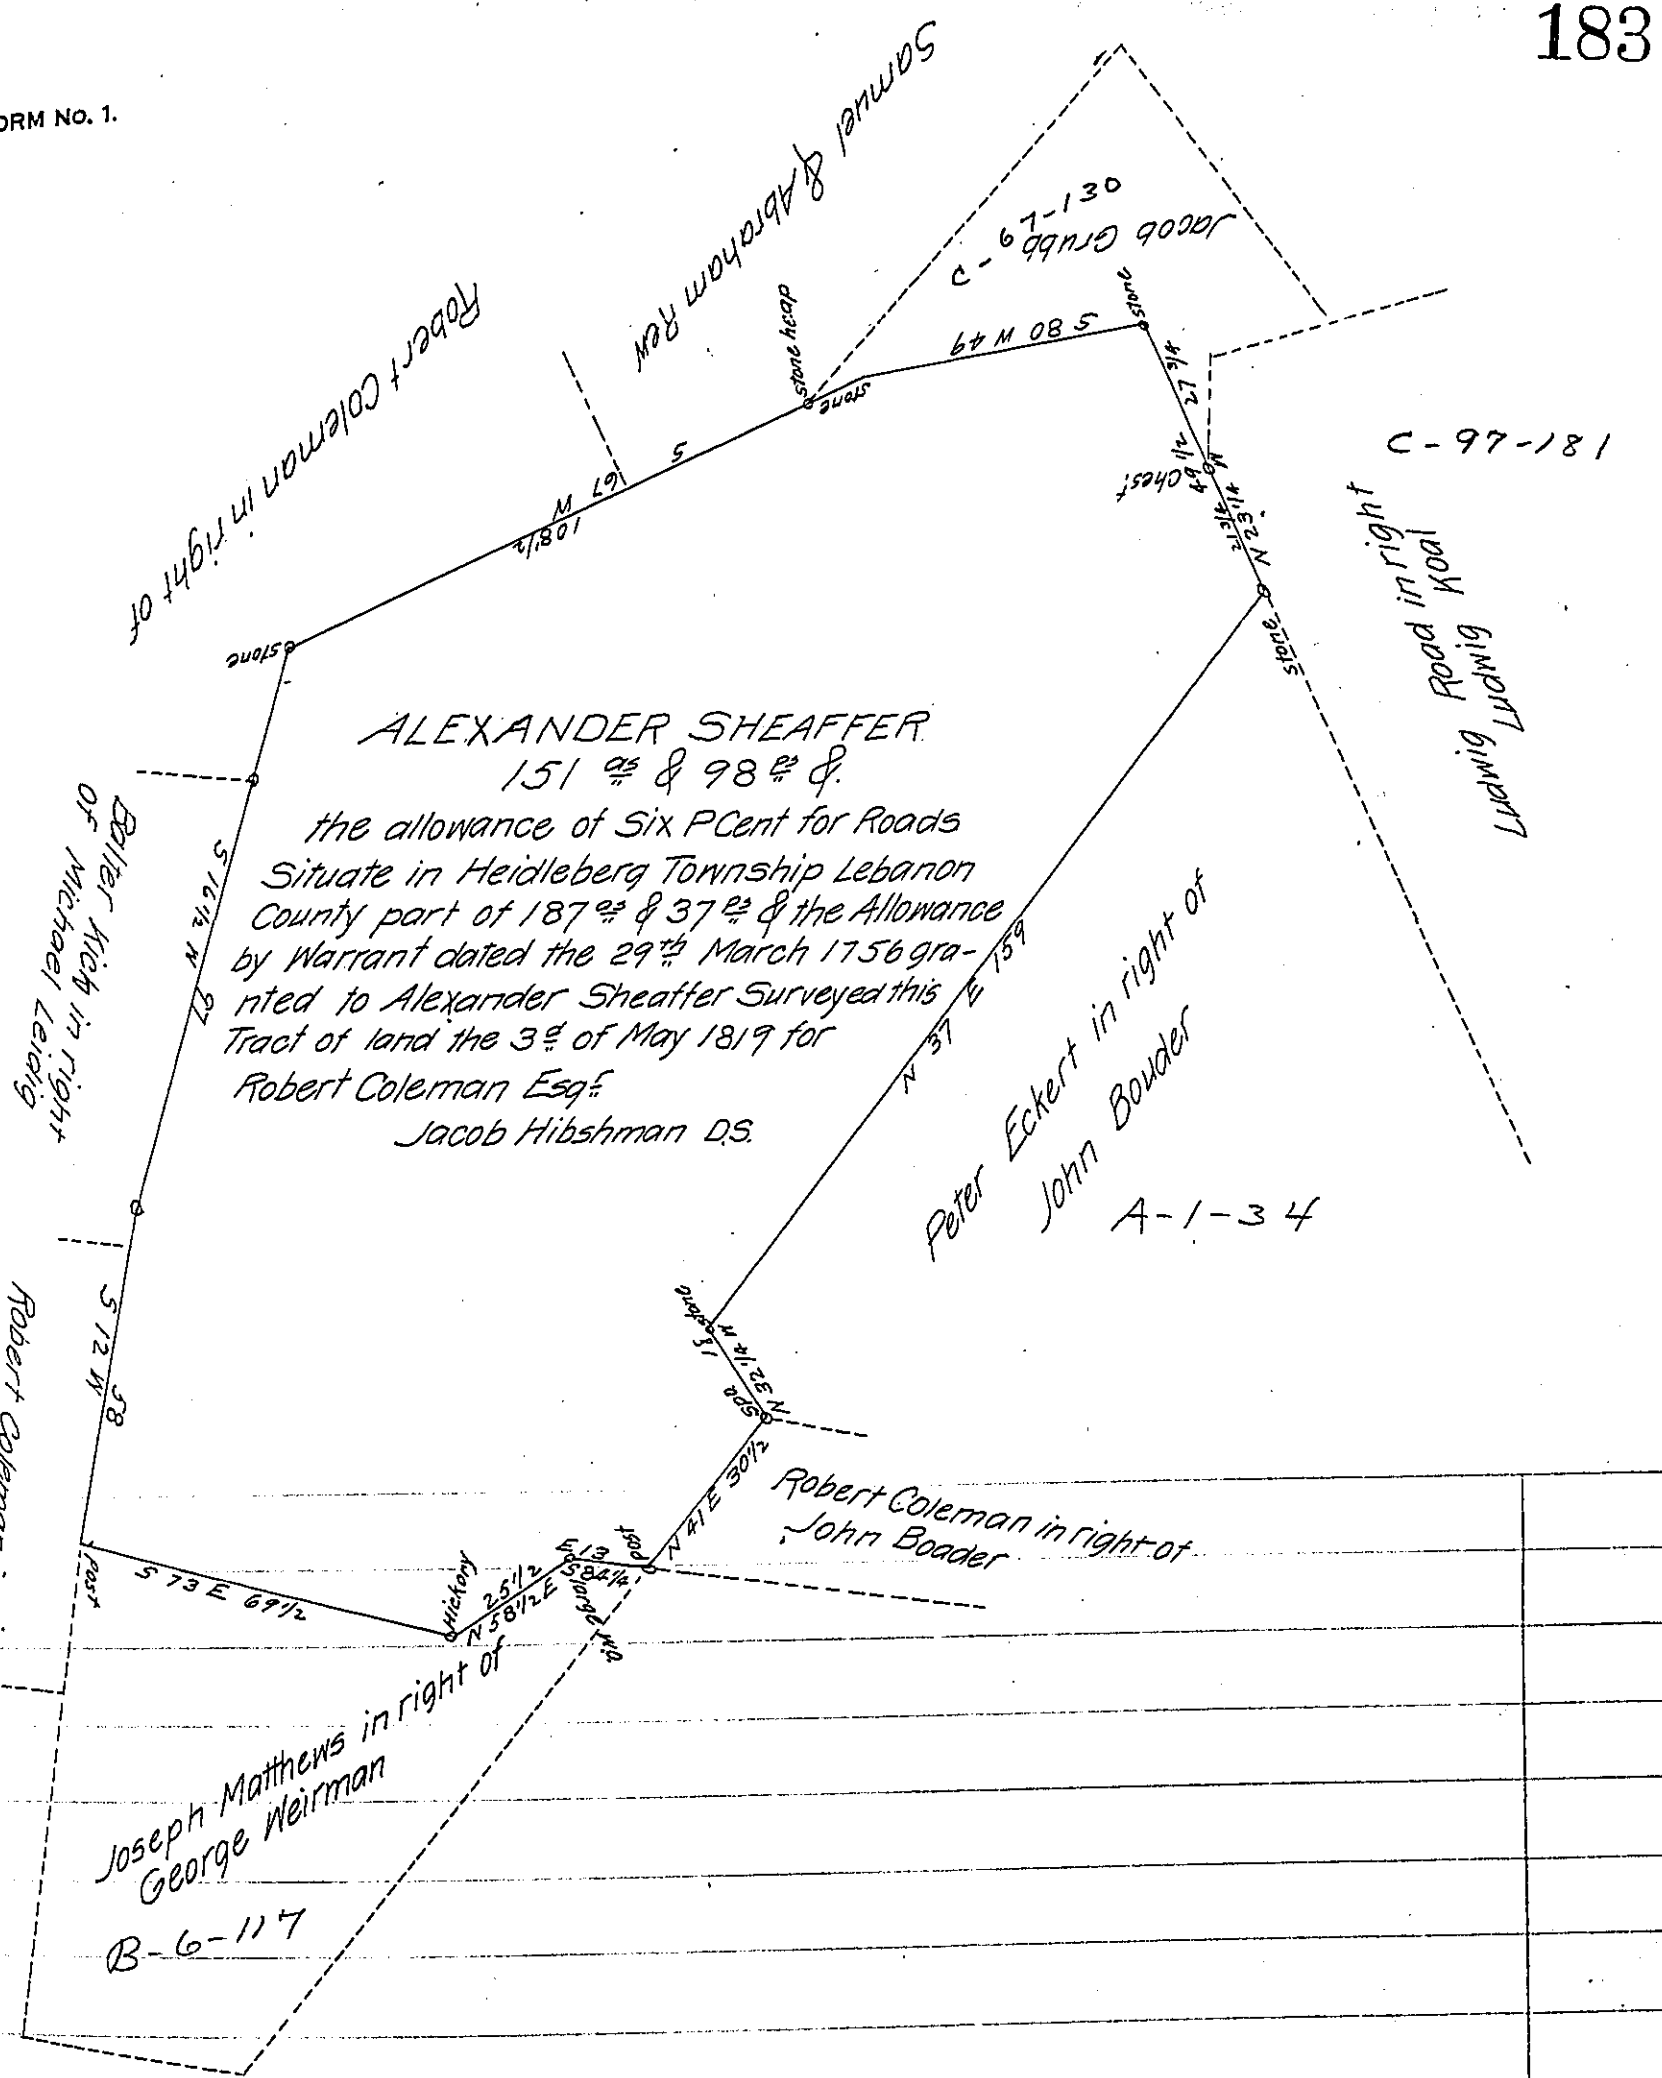 183
ORM No. 1.
Samuel & Abraham Rew
Jacob Grubb
C-
-130
Robert Coleman in right of
stone heap
stone
S 80 W 49
stone
27 3/4
49 1/2
Chest
21 3/4
N 23 1/4 W
stone
C-97-181
Ludwig Road in right
Ludwig Koal
S 67 W
108 1/2
stone
ALEXANDER SHEAFFER
151 as & 98 ps &
the allowance of Six PCent for Roads
Situate in Heidleberg Township Lebanon
County part of 187 as & 37 ps & the Allowance
by Warrant dated the 29th March 1756 gra-
nted to Alexander Sheaffer Surveyed this
Tract of land the 3d of May 1819 for
Robert Coleman Esqr
Jacob Hibshman D.S.
Balter Kich in right
of Michael Leidig
S 16 1/2 W 97
N 37 E 159
Peter Eckert in right of
John Bouder
A-1-34
S 12 W 58
Robert Coleman
stone
18
N 32 1/4 W
Spa
N 41 E 30 1/2
Robert Coleman in right of
John Boader
post
S 73 E 69 1/2
Hickory
25 1/2
N 58 1/2 E
E 13
S 84 1/4
post
large
Joseph Matthews in right of
George Weirman
B-6-117